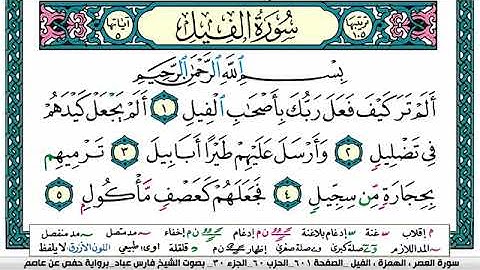 ترتيبها ١٠٥
سورة الفيل
آياتها ٥
بِسْمِ ٱللَّهِ ٱلرَّحْمَٰنِ ٱلرَّحِيمِ
أَلَمْ تَرَ كَيْفَ فَعَلَ رَبُّكَ بِأَصْحَٰبِ ٱلْفِيلِ ١ أَلَمْ يَجْعَلْ كَيْدَهُمْ
فِى تَضْلِيلٍ ٢ وَأَرْسَلَ عَلَيْهِمْ طَيْرًا أَبَابِيلَ ٣ تَرْمِيهِم
بِحِجَارَةٍ مِّن سِجِّيلٍ ٤ فَجَعَلَهُمْ كَعَصْفٍ مَّأْكُولٍ ٥
م إقلاب س غنة س إدغام بلاغنة ن م إدغام ن م إخفاء مد متصل مد منفصل
مد اللازم صلة كبرى صلة صغرى ن م إظهار قلقلة اوى طبيعي اللون الأزرق لا يلفظ
سورة العصر ، الهمزة ، الفيل . الصفحة ٦٠١ الحزب ٦٠ . الجزء ٣٠ . بصوت الشيخ فارس عباد . برواية حفص عن عاصم